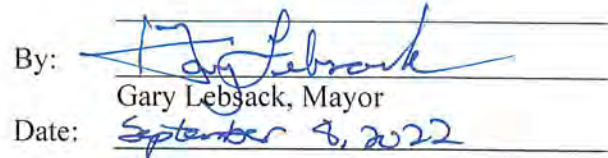 By: Gary Lebsack
Gary Lebsack, Mayor
Date: September 8, 2022